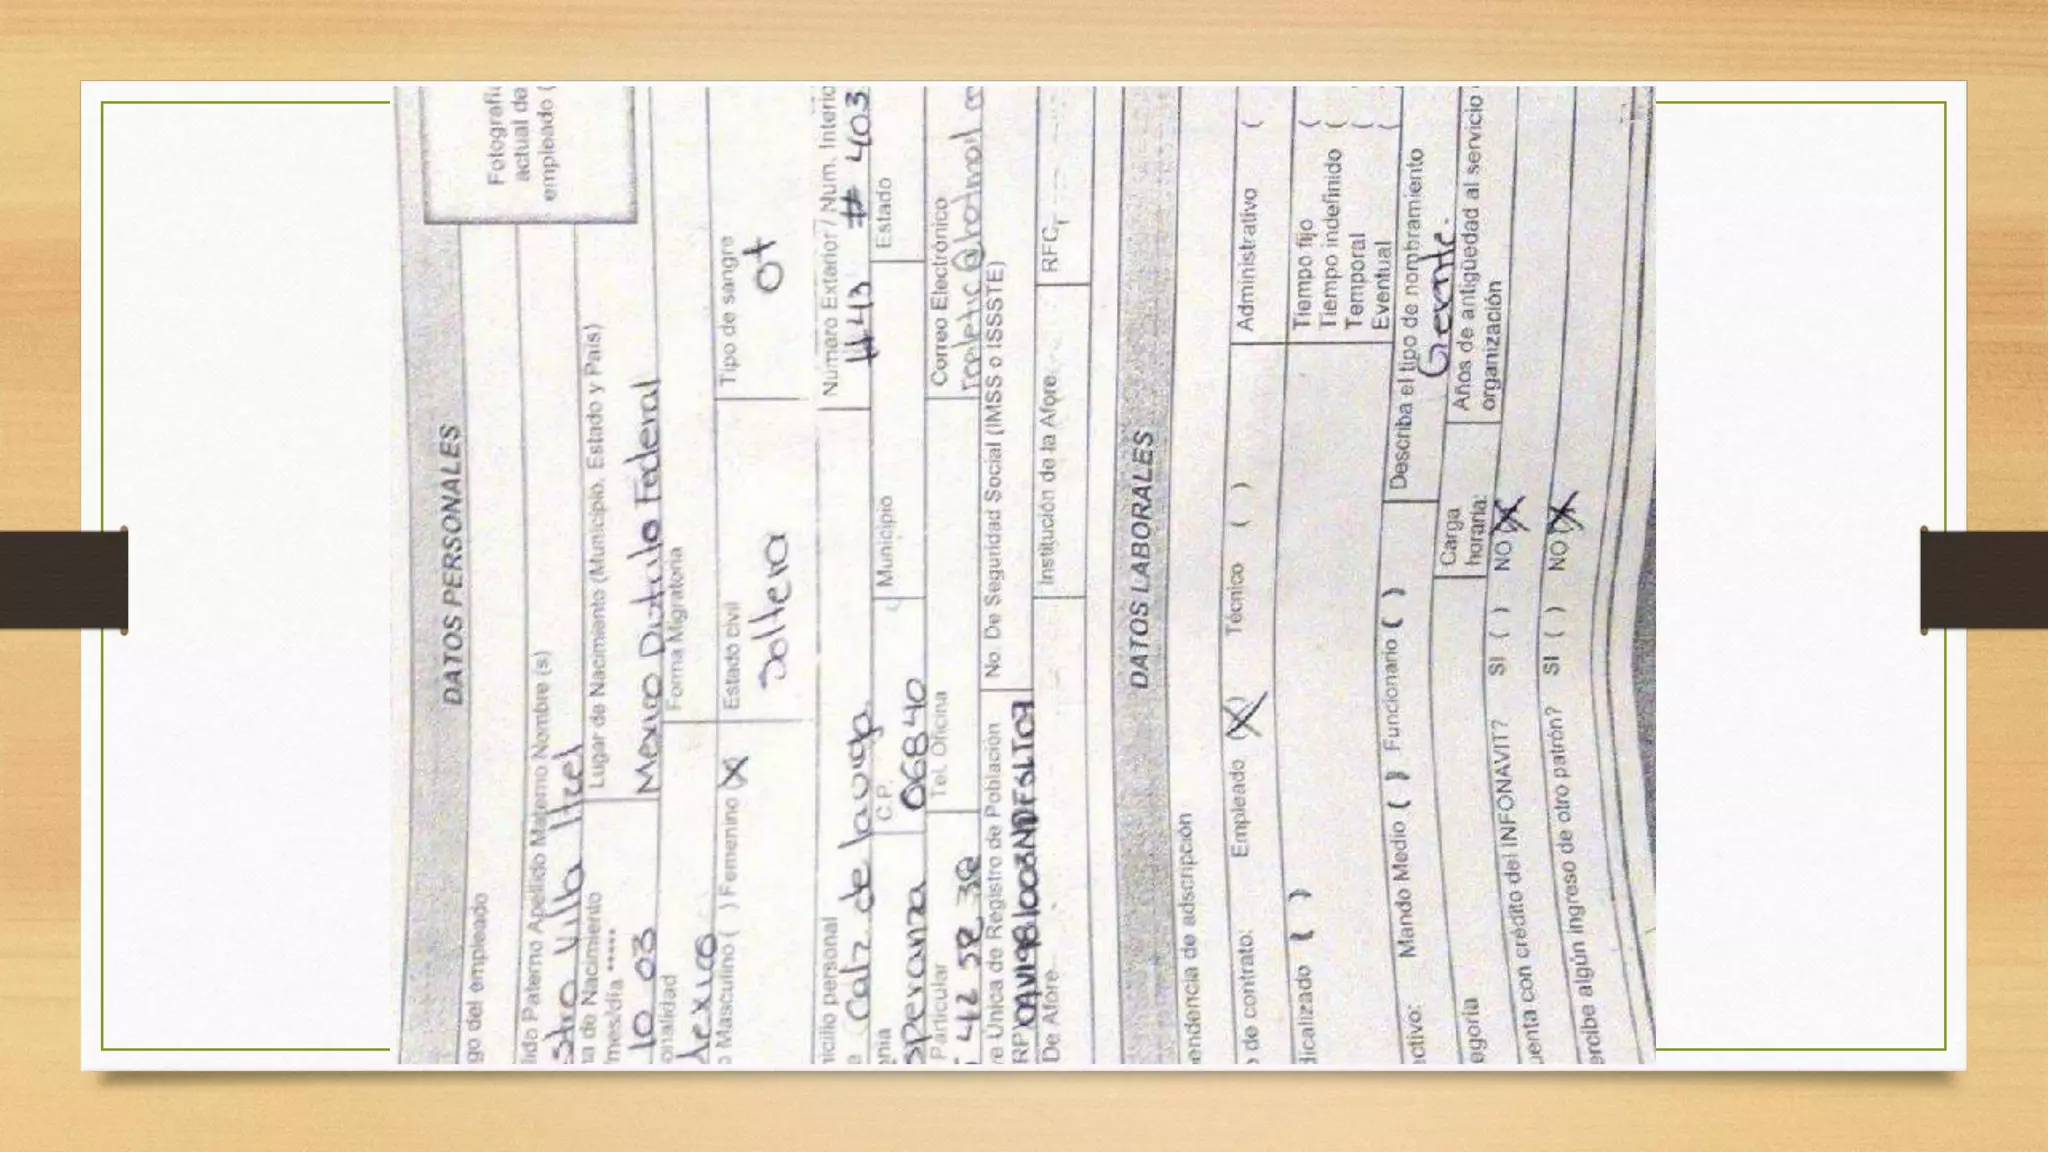 Fotografí
actual de
empleado (
DATOS PERSONALES
go del empleado
lido Paterno Apellido Materno Nombre (s)
stro Villa Itzel
a de Nacimiento
Lugar de Nacimiento (Municipio, Estado y País)
/mes/día ******
10 03
Mexico Distrito Federal
onalidad
Forma Migratoria
exico
o Masculino ( ) Femenino (X)
Estado civil
Soltera
Tipo de sangre
O+
icilio personal
Numero Exterior / Num. Interio
Calz de la viga
#43 # 403
nia
C.P.
Municipio
Estado
speranza
06840
Particular
Tel. Oficina
Correo Electrónico
42 58 38
@hotmail
e Unica de Registro de Población
No. De Seguridad Social (IMSS o ISSSTE)
RP)
De Afore
Institución de la Afore
RFC
DATOS LABORALES
endencia de adscripción
o de contrato: Empleado (X) Técnico ( ) Administrativo (
dicalizado ( )
Tiempo fijo (
Tiempo indefinido (
Temporal (
Eventual (
ctivo: Mando Medio ( ) Funcionario ( )
Describa el tipo de nombramiento
Gerente.
egoría
Carga
horaria:
Años de antigüedad al servicio
organización
uenta con crédito del INFONAVIT? SI ( ) NO (X
ercibe algún ingreso de otro patrón? SI ( ) NO (X